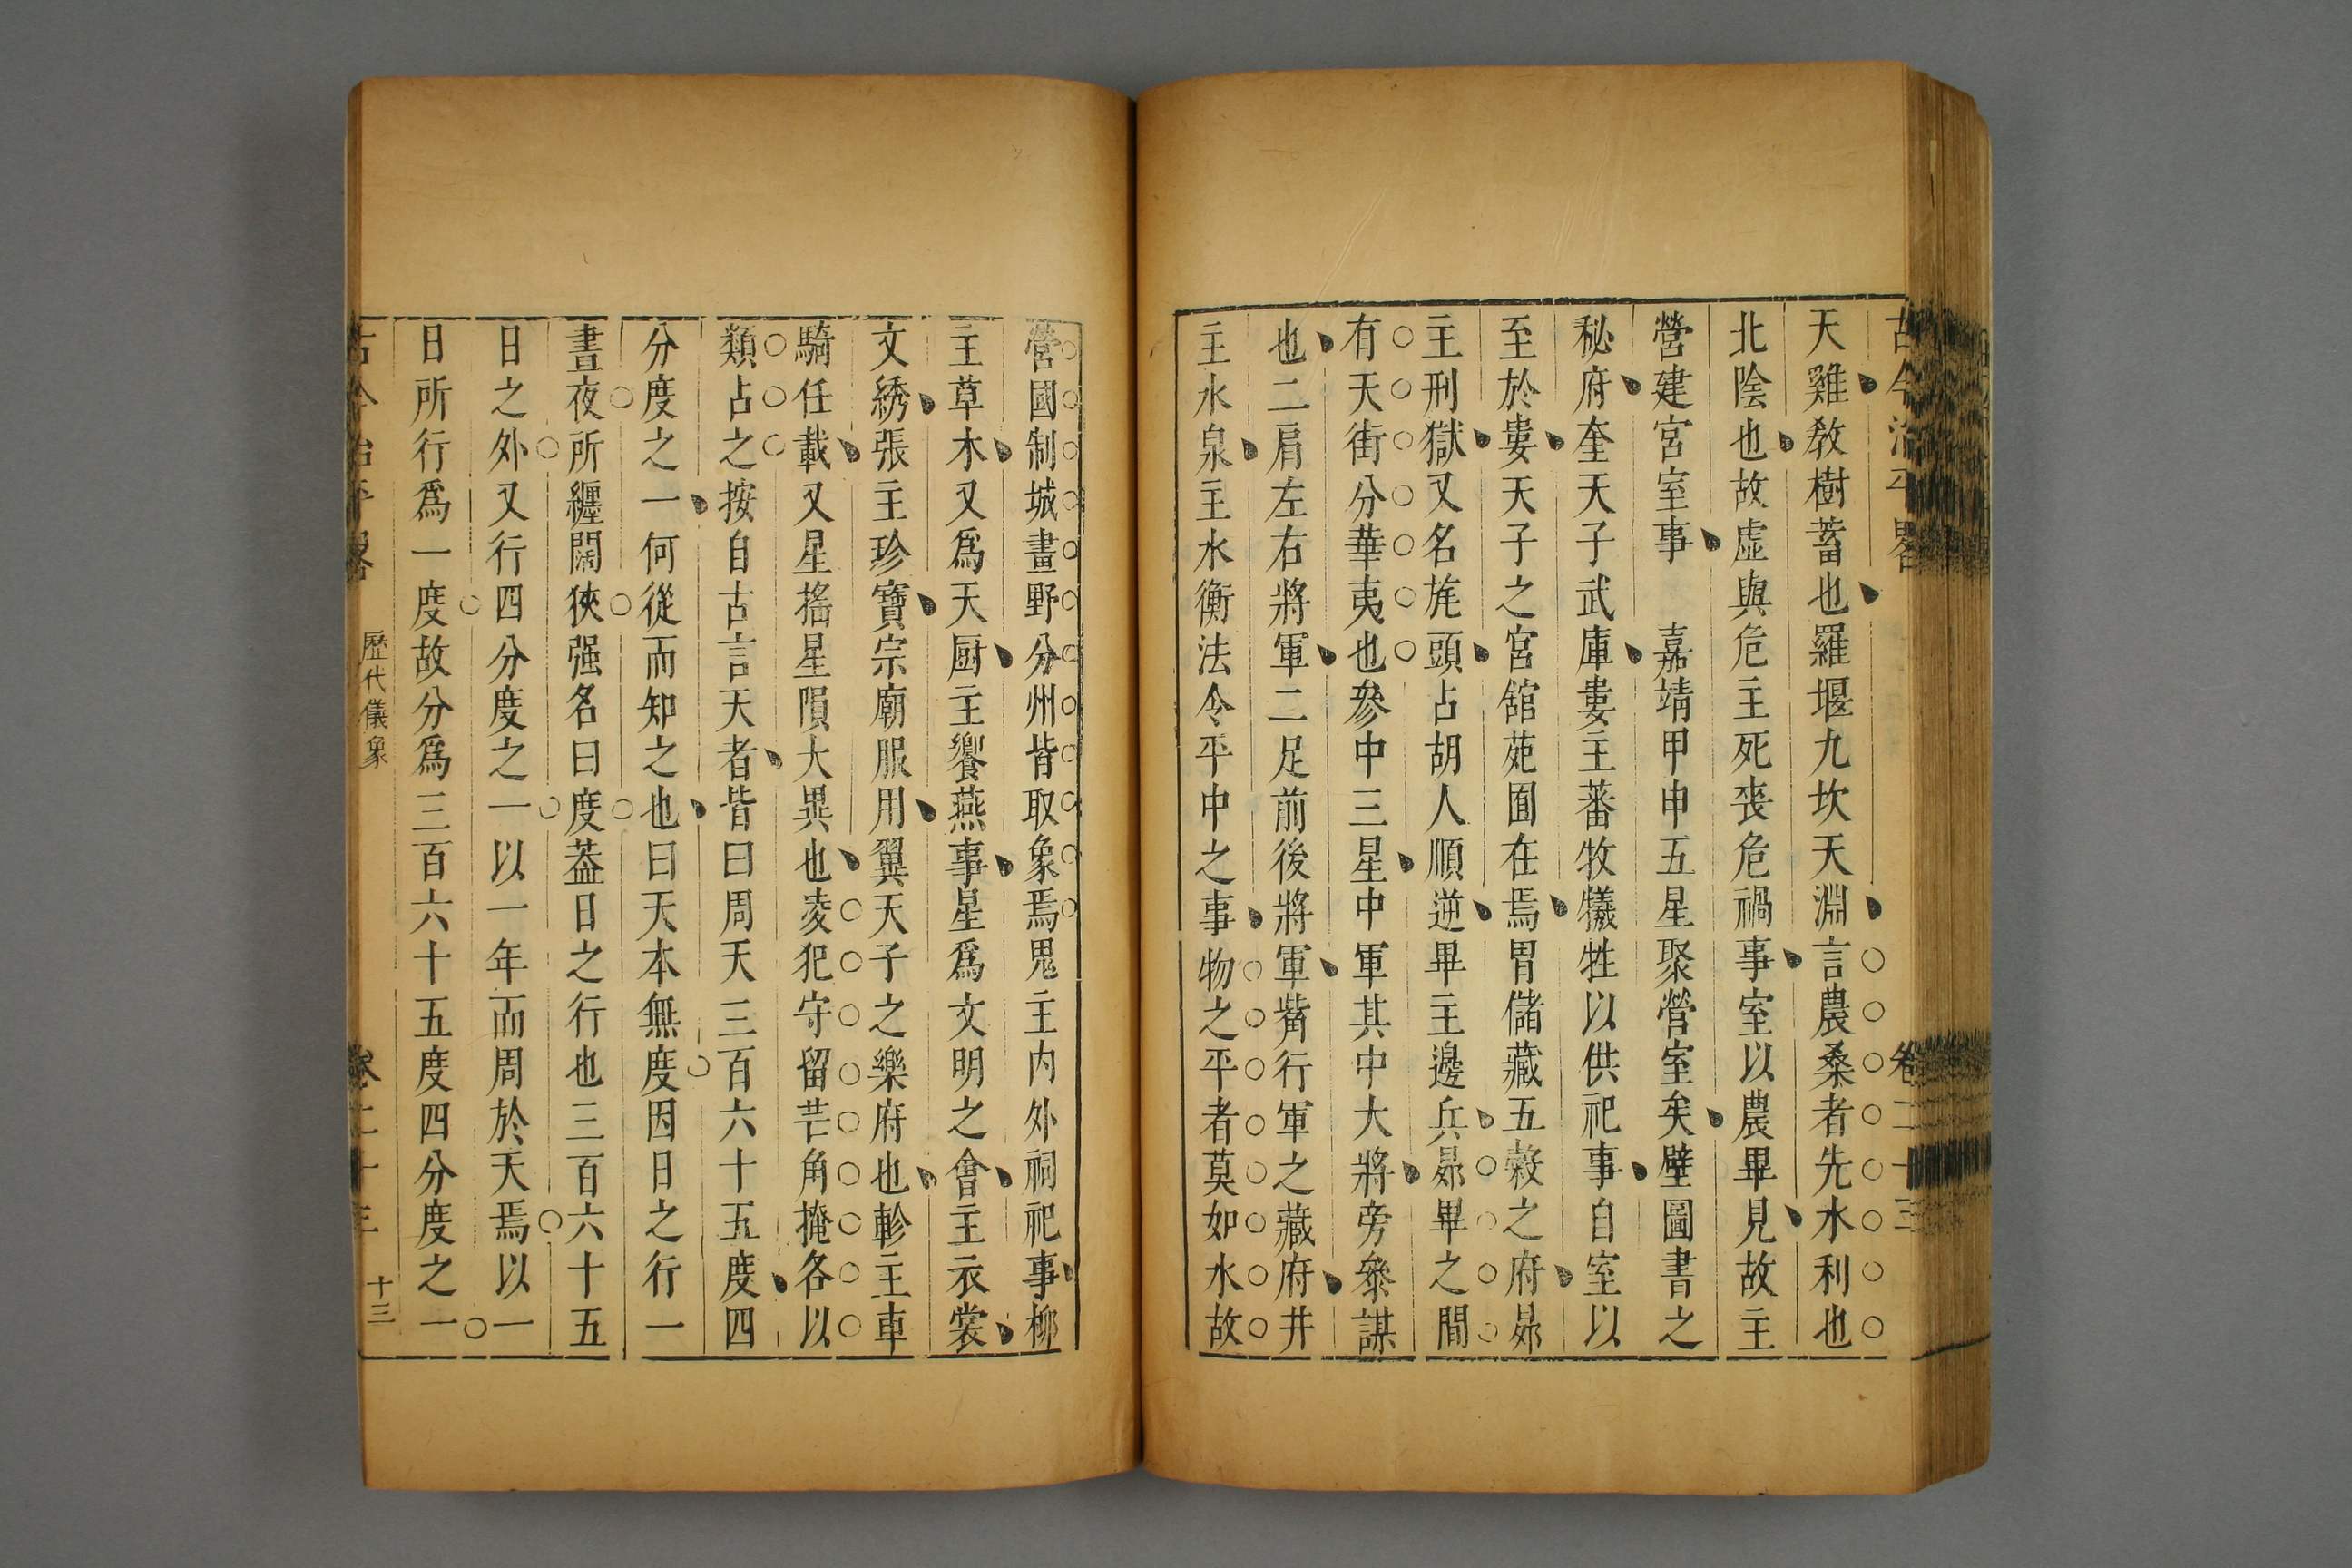 古今治平畧 卷二十三
天雞敎樹蓄也羅堰九坎天淵言農桑者先水利也
北陰也故虛與危主死丧危禍事室以農畢見故主
營建宮室事 嘉靖甲申五星聚營室矣壁圖書之
秘府奎天子武庫婁主蕃牧犧牲以供祀事自室以
至於婁天子之宮舘苑囿在焉胃儲藏五榖之府昴
主刑獄又名旄頭占胡人順逆畢主邊兵昴畢之間
有天街分華夷也參中三星中軍其中大將旁叅謀
也二肩左右將軍二足前後將軍觜行軍之藏府井
主水泉主水衡法令平中之事物之平者莫如水故
營國制城畫野分州皆取象焉鬼主内外祠祀事柳
主草木又爲天厨主饗燕事星爲文明之會主衣裳
文綉張主珍寶宗廟服用翼天子之樂府也軫主車
騎任載又星摇星隕大異也凌犯守留芒角掩各以
類占之按自古言天者皆曰周天三百六十五度四
分度之一何從而知之也曰天本無度因日之行一
晝夜所纏闊狹强名曰度葢日之行也三百六十五
日之外又行四分度之一以一年而周於天焉以一
日所行爲一度故分爲三百六十五度四分度之一
古今治平畧 歷代儀象 卷二十三 十三